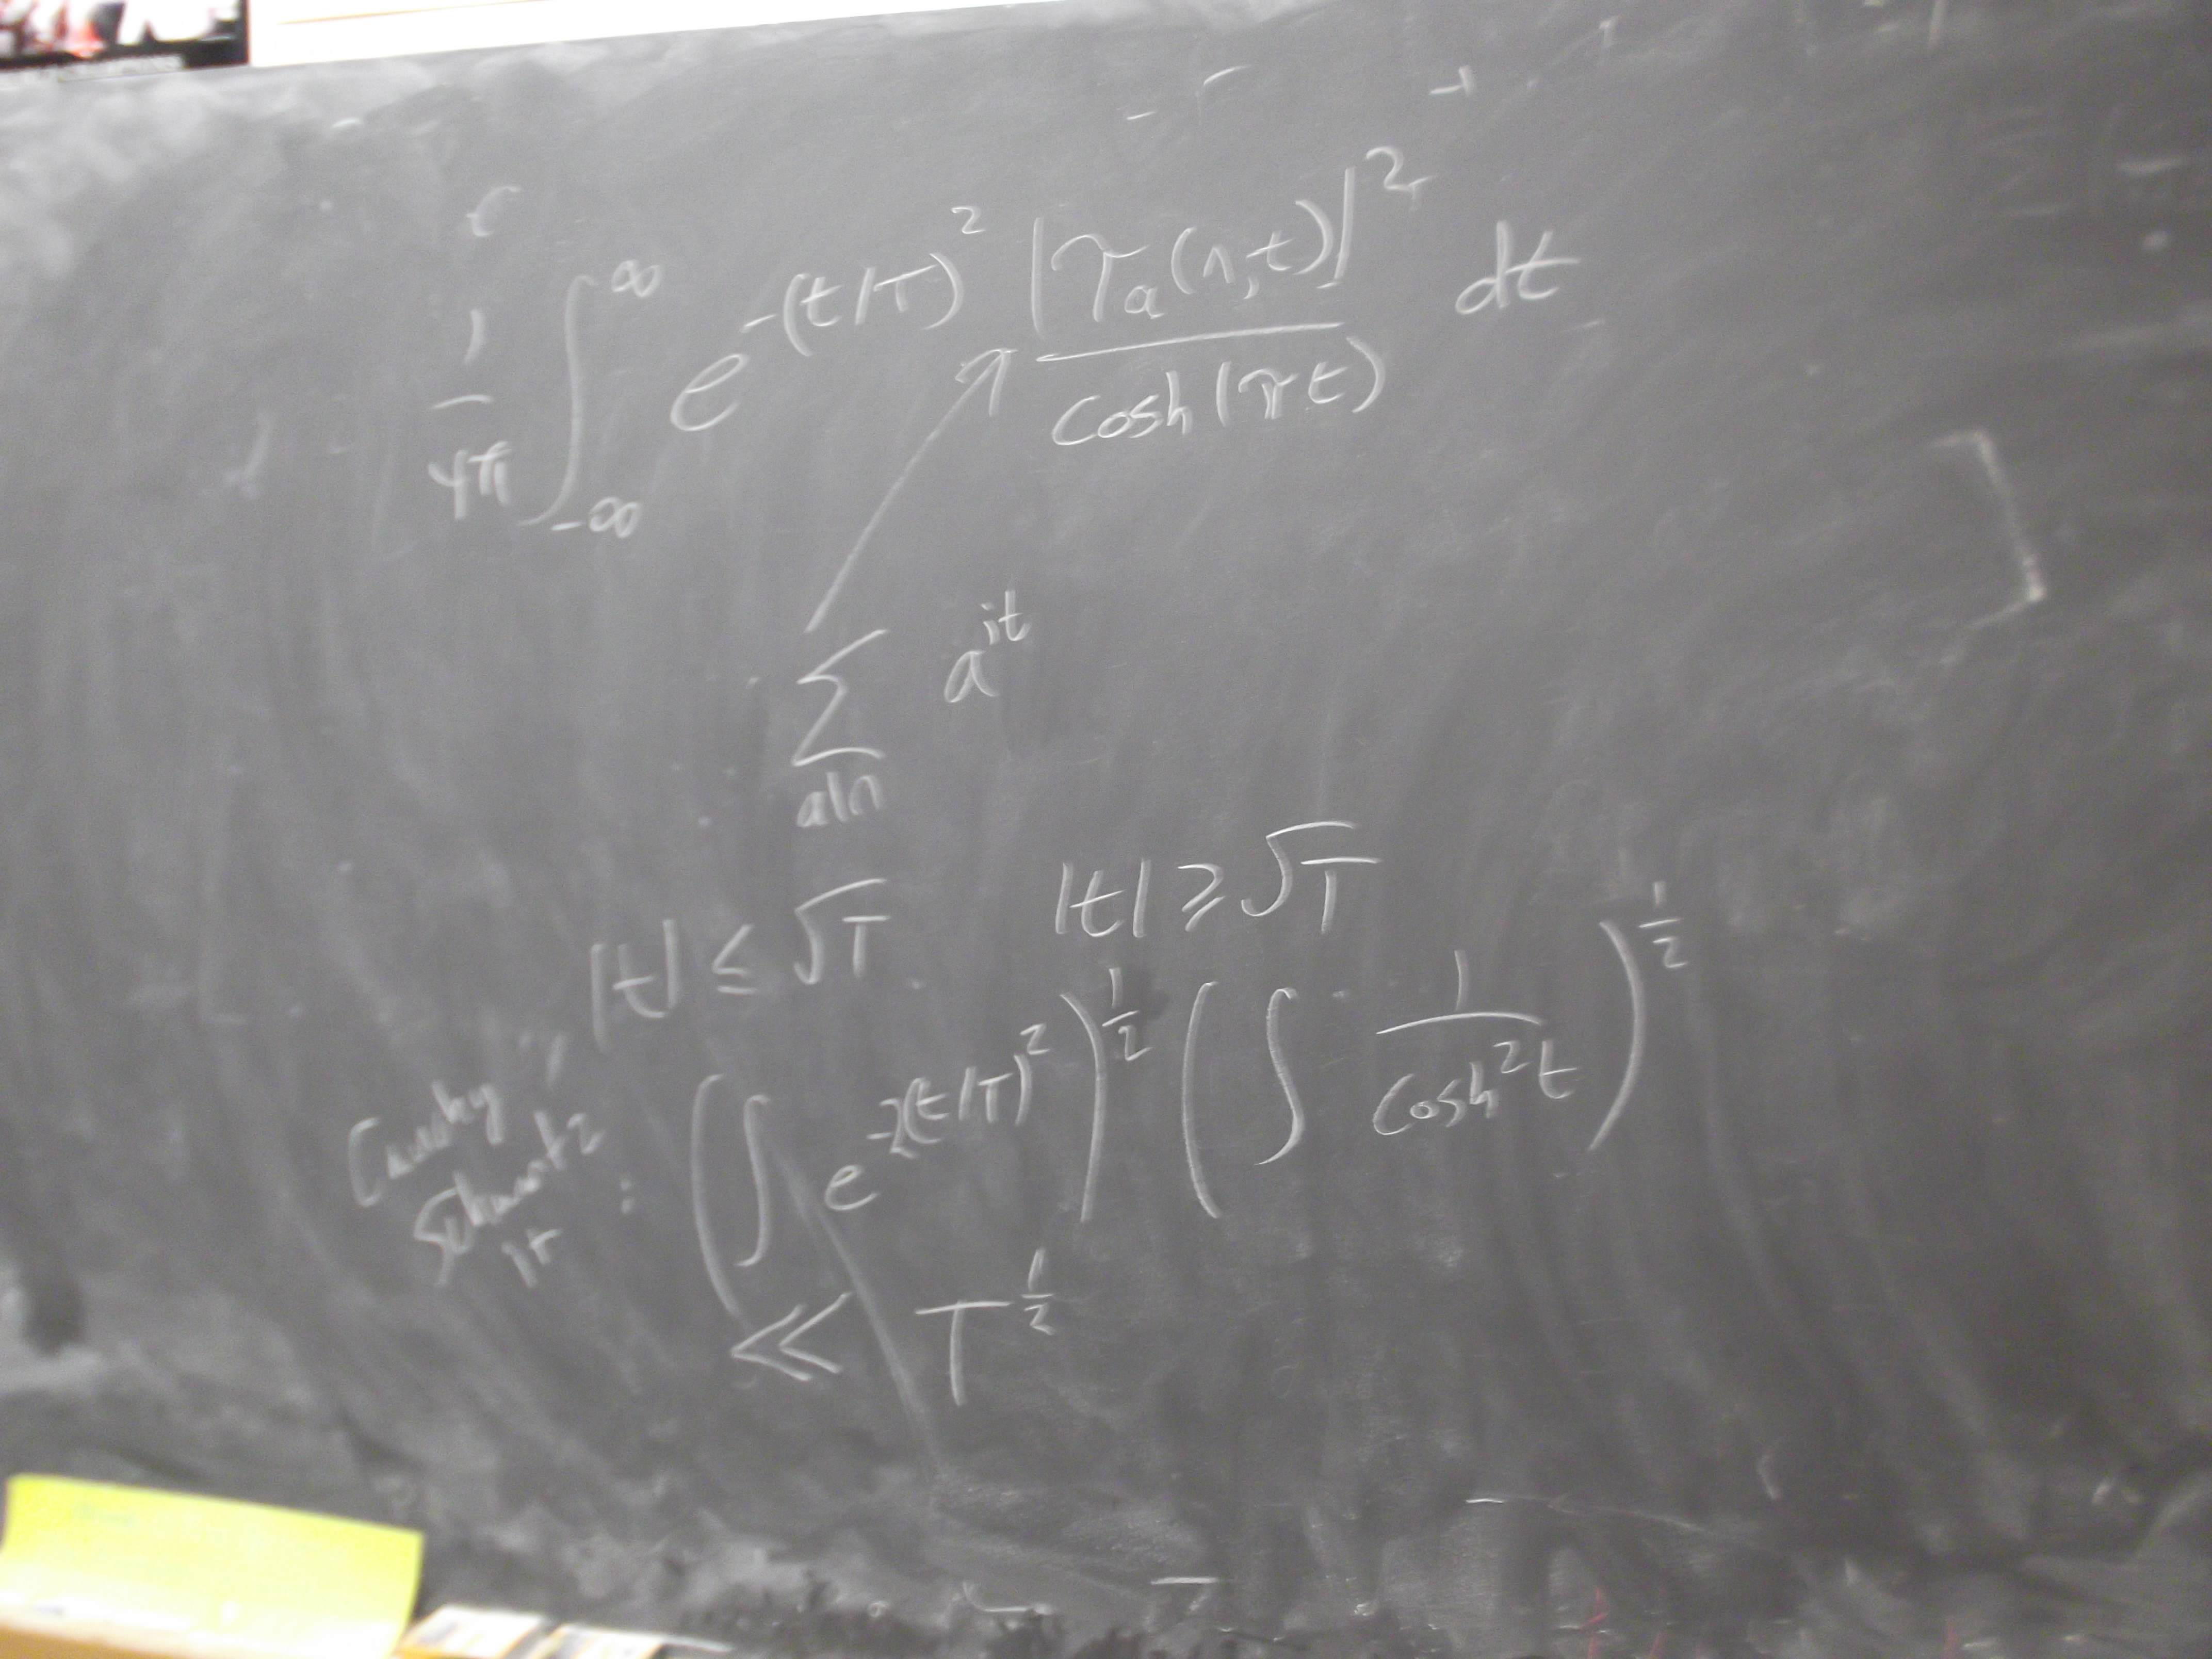 1/4π ∫_{-∞}^{∞} e^{-(t/T)^2} |τ_a(n,t)|^2 / cosh(πt) dt
∑_{a|n} a^{it}
|t| ≤ √T |t| ≥ √T
Cauchy Schwartz it : (∫ e^{-2(t/T)^2})^{1/2} (∫ 1/cosh^2 t)^{1/2}
≪ T^{1/2}